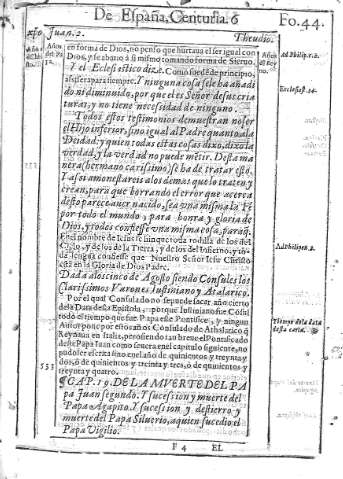 De España, Centuria. 6
Fo. 44.
xpo Juan. 2.
Theudio.
en forma de Dios, no penso que hurtaua el ser igual con
Dios, y se abaxo a si mismo tomando forma de Sieruo.
Y el Eclesiastico dize. Como fuesse de principio,
assi sera para siempre. Y ninguna cosa se le ha añadi
do ni diminuido, por que el es Señor de sus cria
turas, y no tiene necesidad de ninguno.
Todos estos testimonios demuestran no ser
el Hijo inferior, sino igual al Padre quanto a la
Deidad, y quien todas estas cosas dixo, dixo la
verdad, y la verdad no puede mẽtir. Desta ma
nera (hermano carissimo) se ha de tratar esto.
Y assi amonestareis a los demas que lo traten y
crean, para que borrando el error que acerca
desto parece auer nacido, sea una misma la Fe
por todo el mundo, para honra y gloria de
Dios, y todos confiesse una misma cosa, paraq̃.
En el nombre de Iesus se hinque toda rodilla de los del
Cielo, y de los de la Tierra, y de los del Infierno, y toda
lengua confiesse que Nuestro Señor Iesu Christo
està en la Gloria de Dios Padre.
Dada a los cinco de Agosto siendo Consules los
Clarissimos Varones Iustiniano y Atalarico.
Por el qual Consulado no se puede sacar año cierto
de la Data desta Epistola, porque Iustiniano fue Cõsul
todo el tiempo que fue Papa este Pontifice, y ningun
Autor pone por estos años Consulado de Athalarico q̃
Reynaua en Italia, pero siendo tan breue el Pontificado
deste Papa Iuan como se vera en el capitulo siguiente, no
pudo ser escrita sino en el año de quinientos y treynta y
dos, ò de quinientos y treinta y tres, ò de quinientos y
treynta y quatro.
¶ CAP. 19. DE LA MVERTE DEL PA
pa Juan segundo. Y sucession y muerte del
Papa Agapito. Y sucession y destierro y
muerte del Papa Siluerio, a quien sucedio el
Papa Vigilio.
F 4
EL
Ad Philip. 2.
Eclesiast. 24.
Ad Philipen. 2.
Tiempo de la data
desta carta.
533